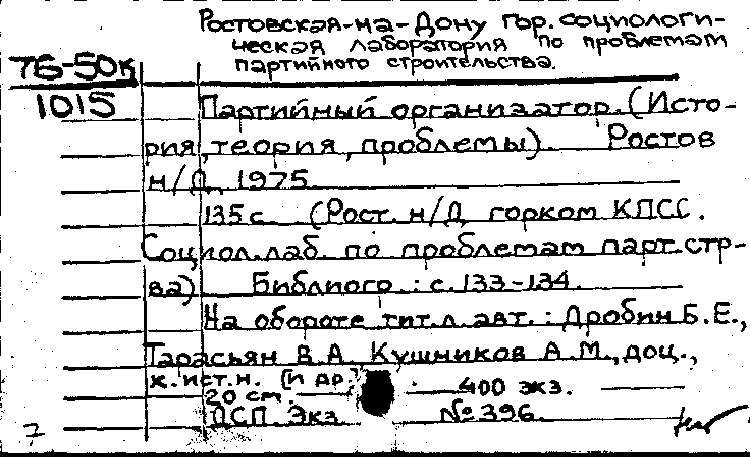 Ростовская-на-Дону гор. социологи-
ческая лаборатория по проблемам
партийного строительства.
76-50к
1015
Партийный организатор. (Исто-
рия, теория, проблемы). Ростов
н/Д, 1975.
135 с. (Рост. н/Д горком КПСС.
Социол. лаб. по проблемам парт. стр-
ва). Библиогр.: с. 133-134.
На обороте тит. л. авт.: Дробин Б.Е.,
Тарасьян В.А. Кушников А.М., доц.,
к. ист. н. [и др.] 400 экз.
20 см.
ДСП. Экз. № 396.
7